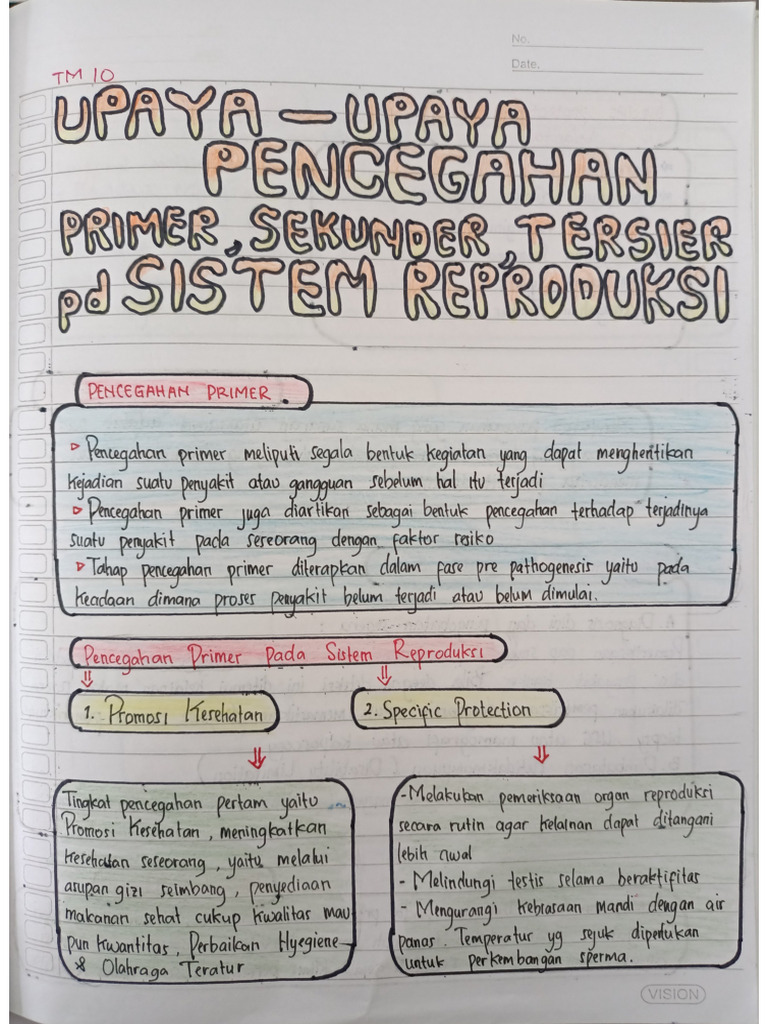 No.
Date.
TM 10
UPAYA - UPAYA
PENCEGAHAN
PRIMER, SEKUNDER, TERSIER
pd SISTEM REPRODUKSI
PENCEGAHAN PRIMER.
▷ Pencegahan primer meliputi segala bentuk kegiatan yang dapat menghentikan
kejadian suatu penyakit atau gangguan sebelum hal itu terjadi
▷ Pencegahan primer juga diartikan sebagai bentuk pencegahan terhadap terjadinya
suatu penyakit pada sereorang dengan faktor resiko
▷ Tahap pencegahan primer diterapkan dalam fase pre pathogenesis yaitu pada
keadaan dimana proses penyakit belum terjadi atau belum dimulai.
Pencegahan Primer Pada Sistem Reproduksi
⇓ ⇓
1. Promosi Kesehatan
2. Specific Protection
⇓ ⇓
Tingkat pencegahan pertam yaitu
Promosi Kesehatan, meningkatkan
kesehatan seseorang, yaitu melalui
asupan gizi seimbang, penyediaan
makanan sehat cukup kwalitas mau
pun kwantitas, Perbaikan Hyegiene
& Olahraga Teratur
- Melakukan pemeriksaan organ reproduksi
secara rutin agar kelainan dapat ditangani
lebih awal
- Melindungi testis selama beraktifitas
- Mengurangi kebiasaan mandi dengan air
panas. Temperatur yg sejuk diperlukan
untuk perkembangan sperma.
VISION